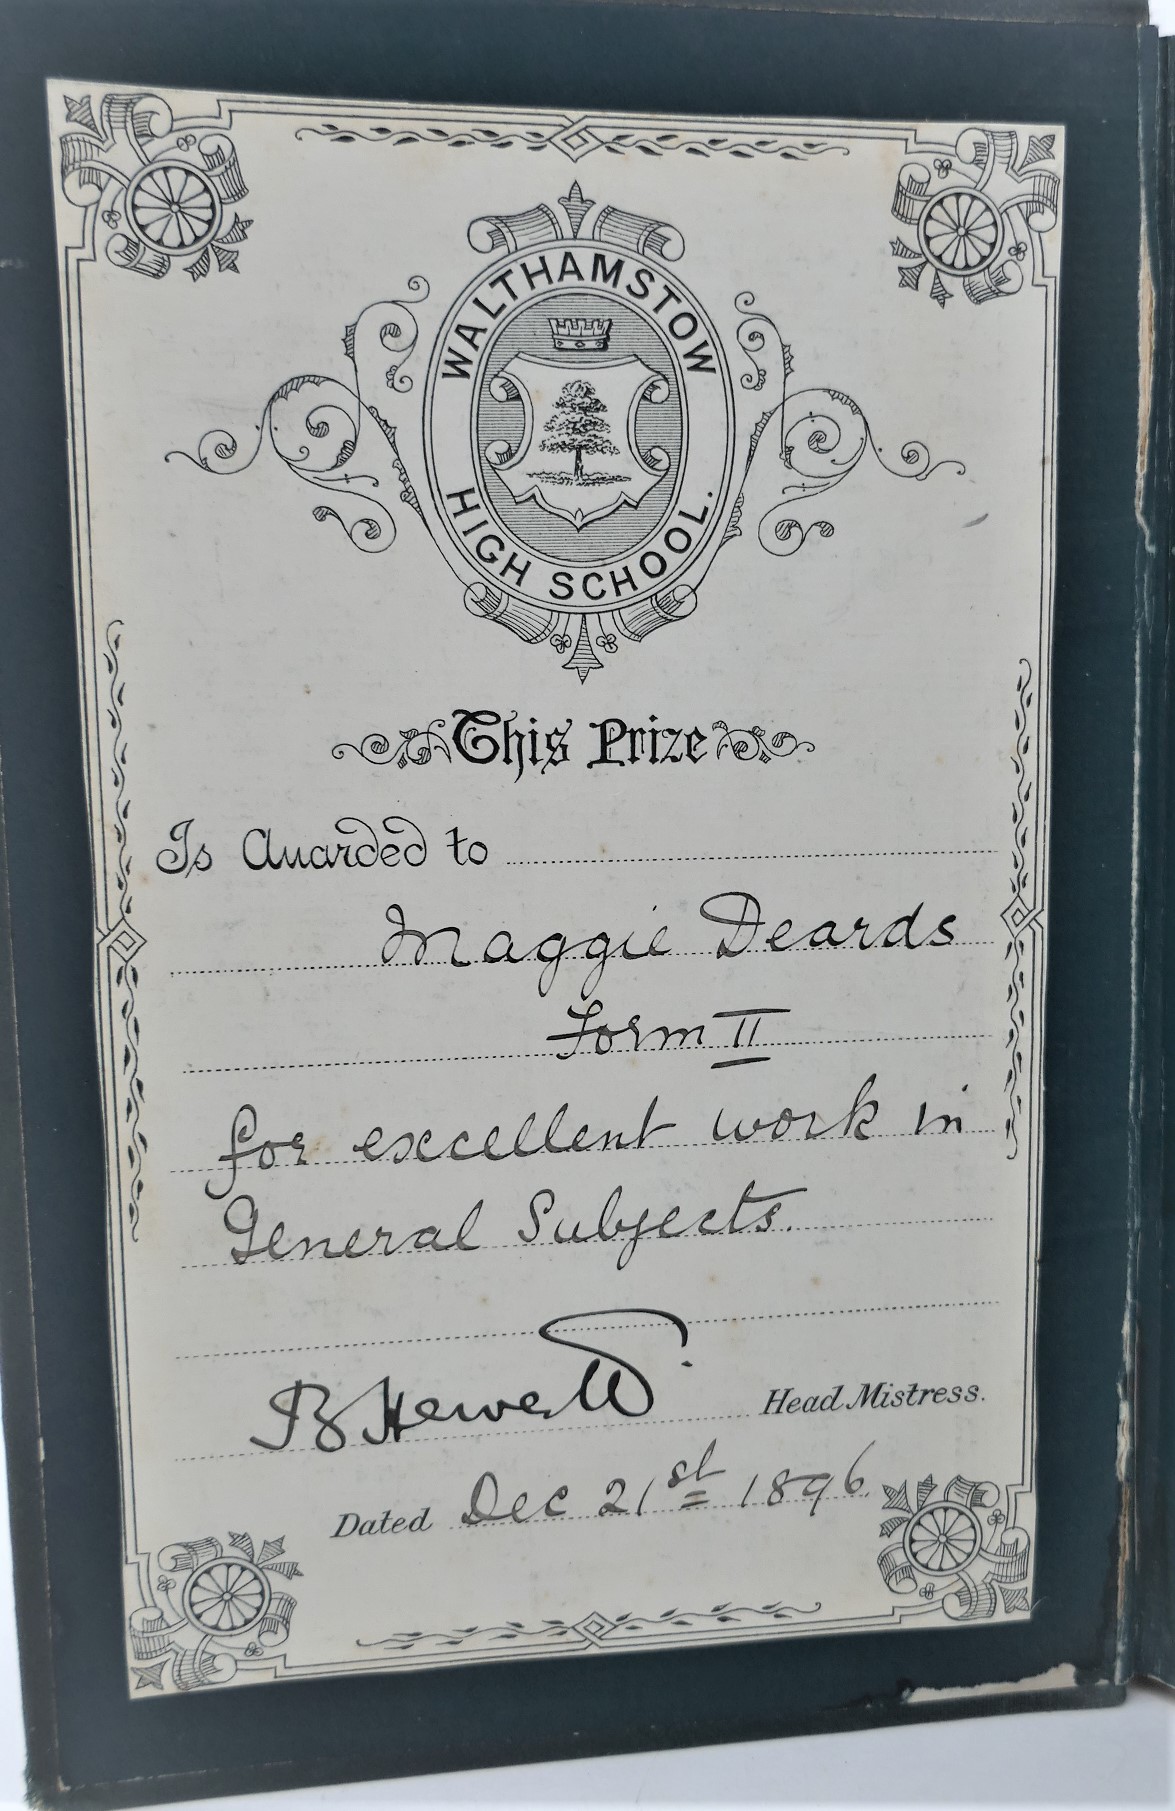 WALTHAMSTOW
HIGH SCHOOL.
This Prize
Is Awarded to
Maggie Deards
Form II
for excellent work in
General Subjects.
B Hewett Head Mistress.
Dated Dec 21st 1896.